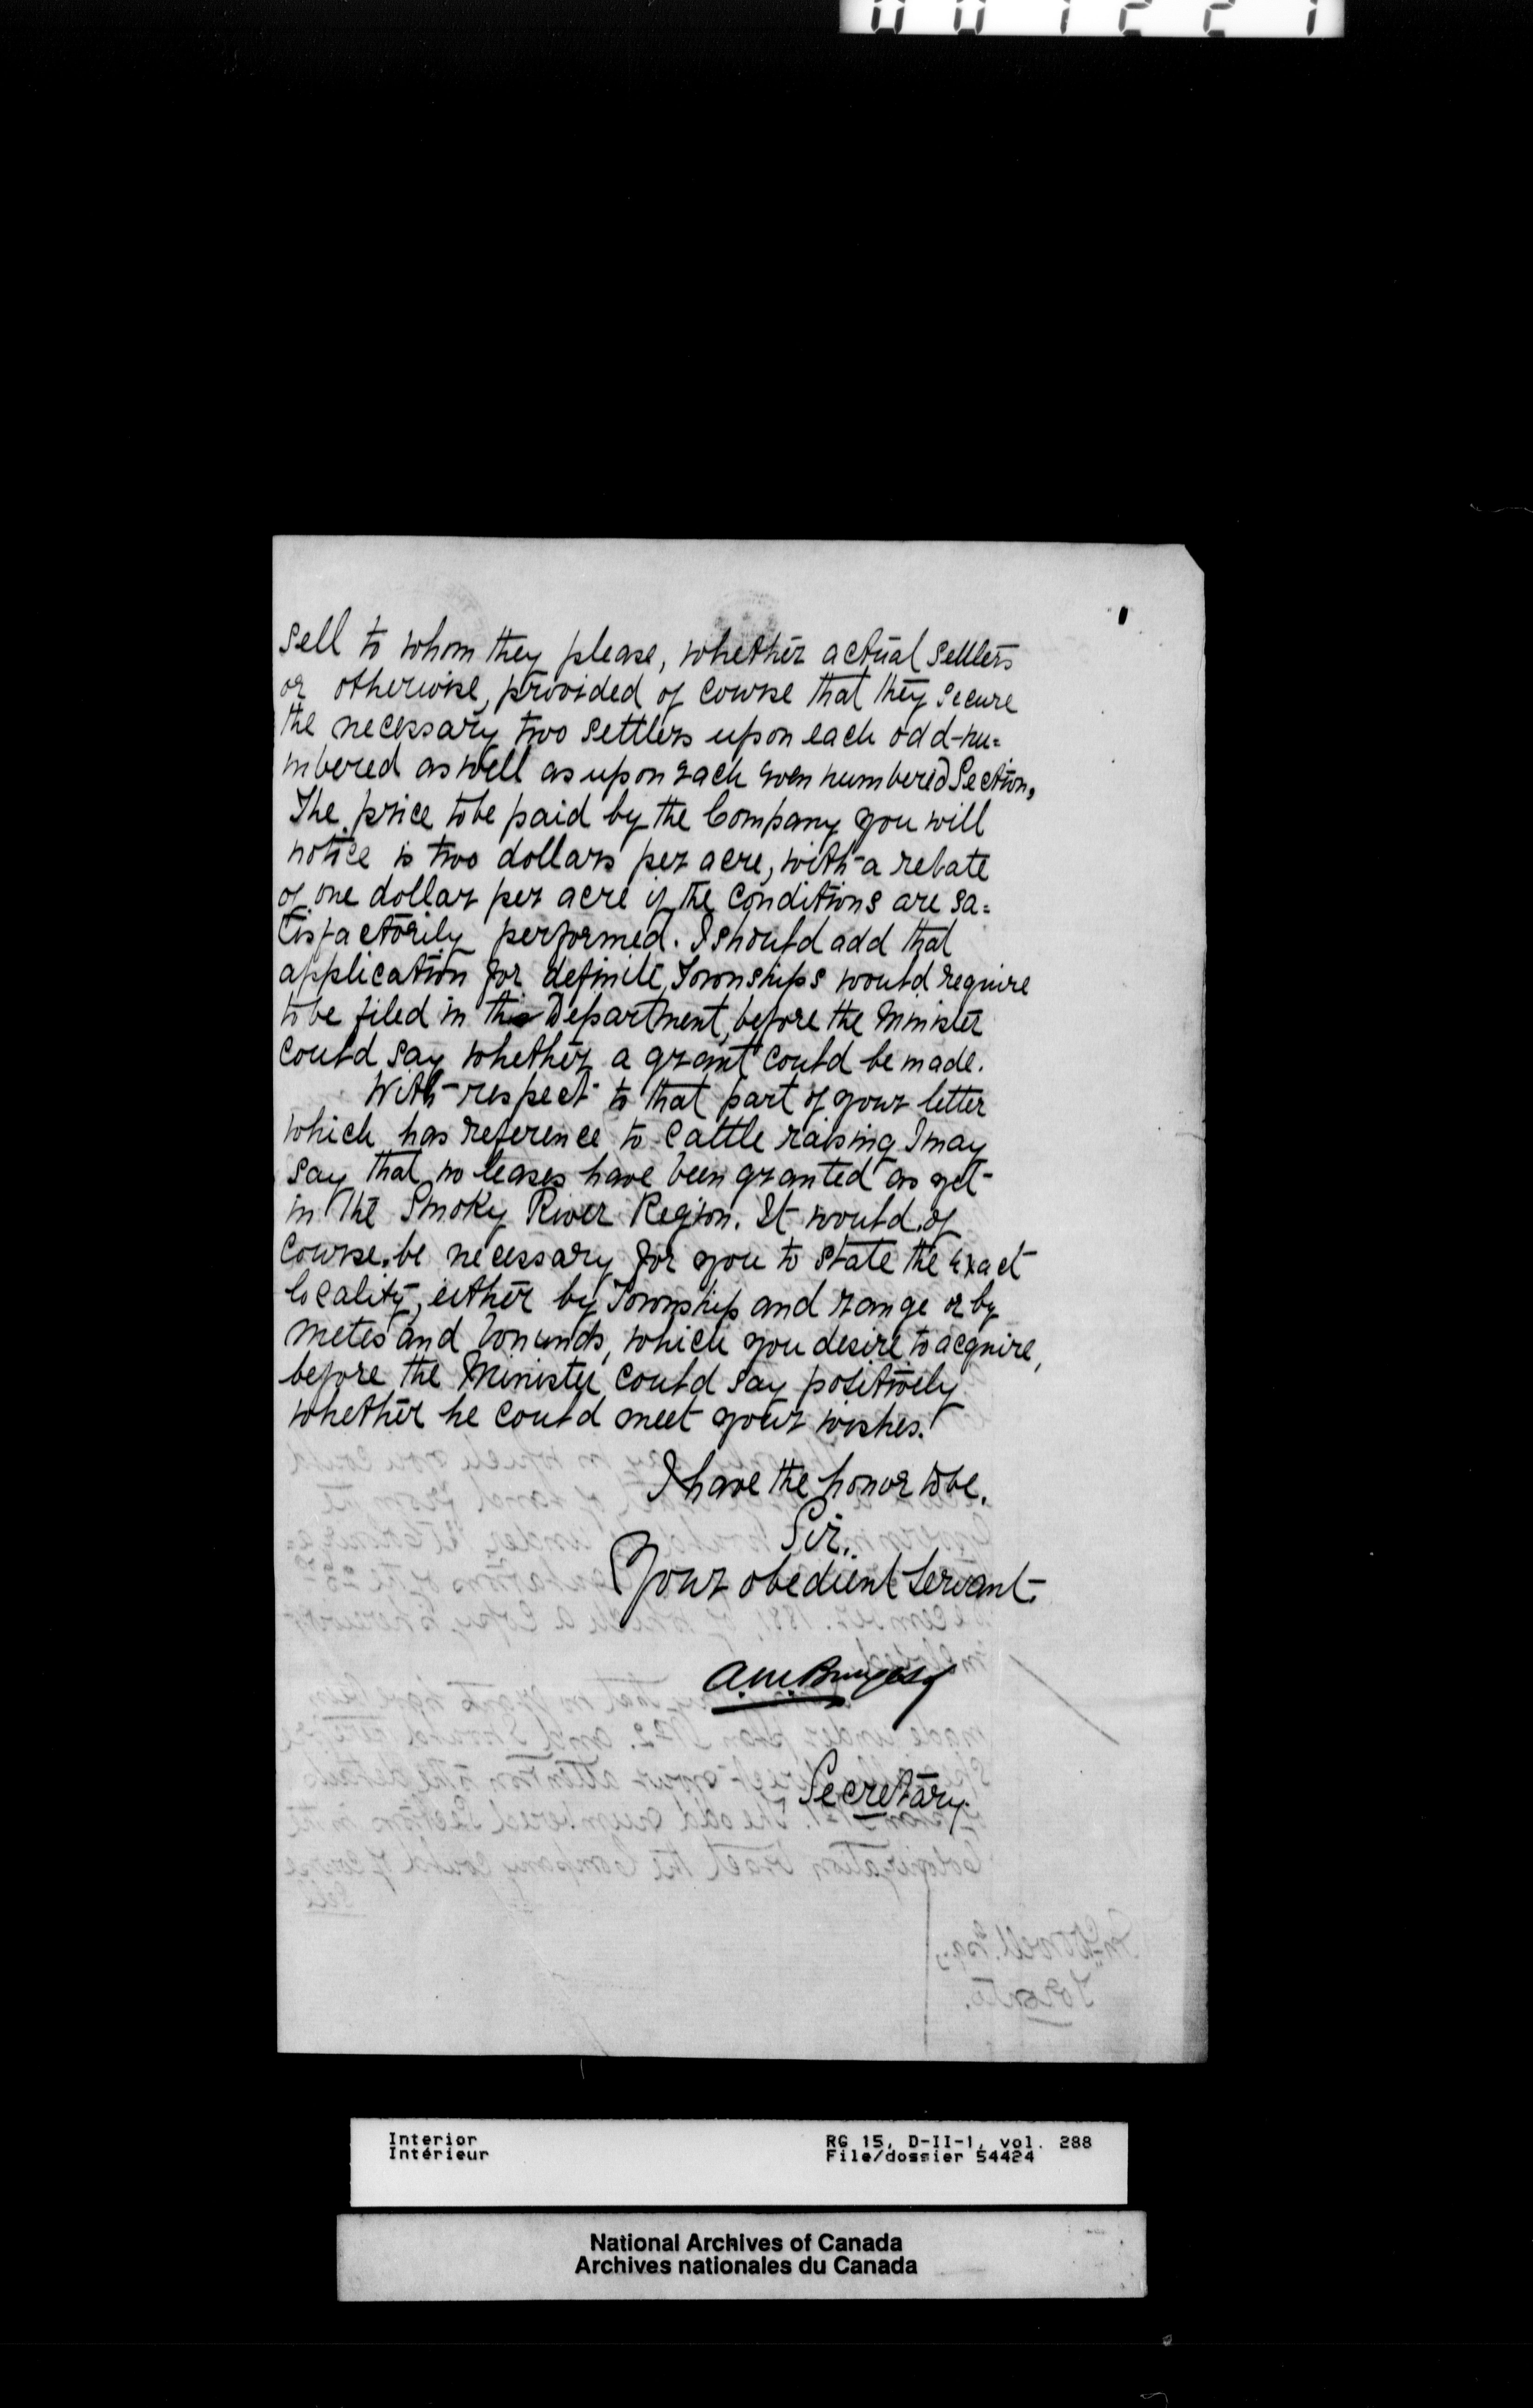 001221
sell to whom they please, whether actual settlers
or otherwise, provided of course that they secure
the necessary two settlers upon each odd-nu=
mbered as well as upon each even numbered Section.
The price to be paid by the Company you will
notice is two dollars per acre, with a rebate
of one dollar per acre if the conditions are sa=
tisfactorily performed. I should add that
application for definite Townships would require
to be filed in this Department, before the Minister
could say whether a grant could be made.
With respect to that part of your letter
which has reference to Cattle raising I may
say that no leases have been granted as yet
in the Smoky River Region. It would, of
course, be necessary for you to state the exact
locality, either by Township and range or by
metes and bounds, which you desire to acquire,
before the Minister could say positively
whether he could meet your wishes.
I have the honor to be,
Sir,
Your obedient Servant.
A.M. Burgess
Secretary.
Interior RG 15, D-II-1, vol. 288
Intérieur File/dossier 54424
National Archives of Canada
Archives nationales du Canada